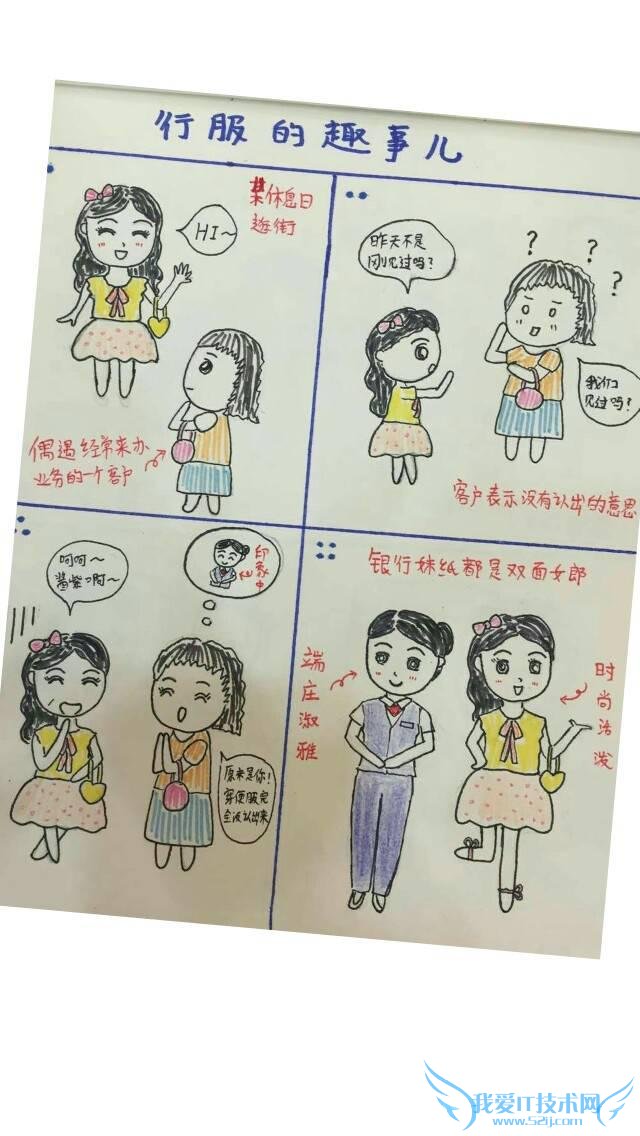 行服的趣事儿
某休息日
逛街
HI~
偶遇经常来办
业务的一个客户
昨天不是
刚见过吗?
? ? ?
我们
见过吗?
客户表示没有认出的意思
呵呵~
酱紫啊~
印象中
原来是你!
穿便服完
全没认出来
银行妹纸都是双面女郎
端庄淑雅
时尚活泼
我爱IT技术网
www.52ij.com